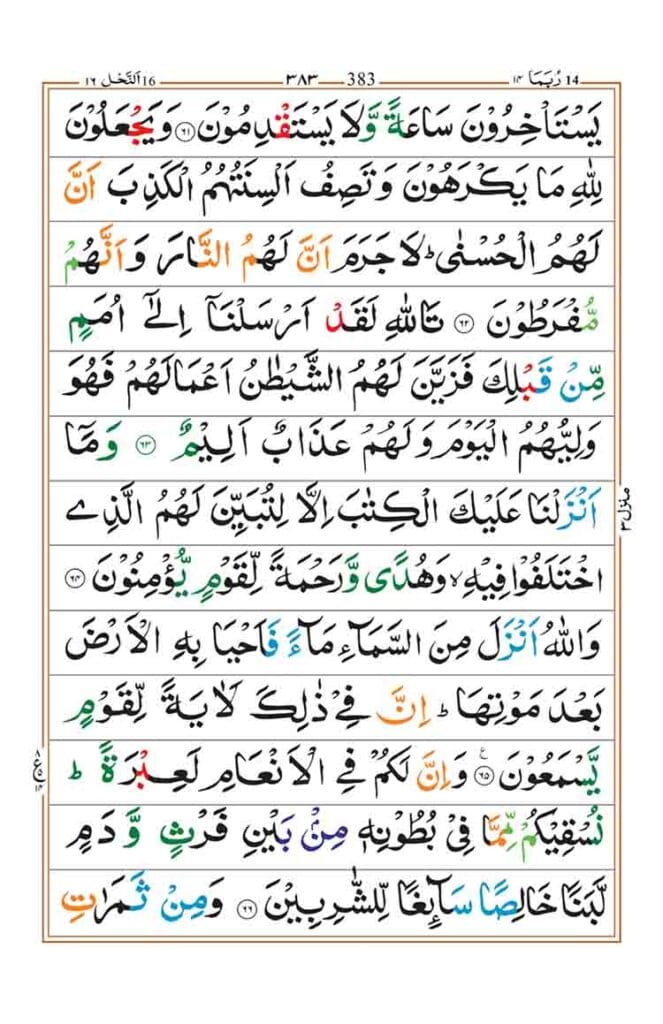 ١٦ اَلنَّحْل 16 ٣٨٣ 383 رُبَمَا 14 ١٤
يَسْتَاْخِرُوْنَ سَاعَةً وَّلَا يَسْتَقْدِمُوْنَ ۝٦١ وَيَجْعَلُوْنَ
لِلّٰهِ مَا يَكْرَهُوْنَ وَتَصِفُ اَلْسِنَتُهُمُ الْكَذِبَ اَنَّ
لَهُمُ الْحُسْنٰى ؕ لَا جَرَمَ اَنَّ لَهُمُ النَّارَ وَاَنَّهُمْ
مُّفْرَطُوْنَ ۝٦٢ تَاللّٰهِ لَقَدْ اَرْسَلْنَاۤ اِلٰۤى اُمَمٍ
مِّنْ قَبْلِكَ فَزَيَّنَ لَهُمُ الشَّيْطٰنُ اَعْمَالَهُمْ فَهُوَ
وَلِيُّهُمُ الْيَوْمَ وَلَهُمْ عَذَابٌ اَلِيْمٌ ۝٦٣ وَمَاۤ
اَنْزَلْنَا عَلَيْكَ الْكِتٰبَ اِلَّا لِتُبَيِّنَ لَهُمُ الَّذِى
اخْتَلَفُوْا فِيْهِ ۙ وَهُدًى وَّرَحْمَةً لِّقَوْمٍ يُّؤْمِنُوْنَ ۝٦٤
وَاللّٰهُ اَنْزَلَ مِنَ السَّمَآءِ مَآءً فَاَحْيَا بِهِ الْاَرْضَ
بَعْدَ مَوْتِهَا ؕ اِنَّ فِىْ ذٰلِكَ لَاٰيَةً لِّقَوْمٍ
يَّسْمَعُوْنَ ۝٦٥ ع وَاِنَّ لَكُمْ فِى الْاَنْعَامِ لَعِبْرَةً ؕ
نُسْقِيْكُمْ مِّمَّا فِىْ بُطُوْنِهٖ مِنْۢ بَيْنِ فَرْثٍ وَّدَمٍ
لَّبَنًا خَالِصًا سَآئِغًا لِّلشّٰرِبِيْنَ ۝٦٦ وَمِنْ ثَمَرٰتِ
منزل ٣